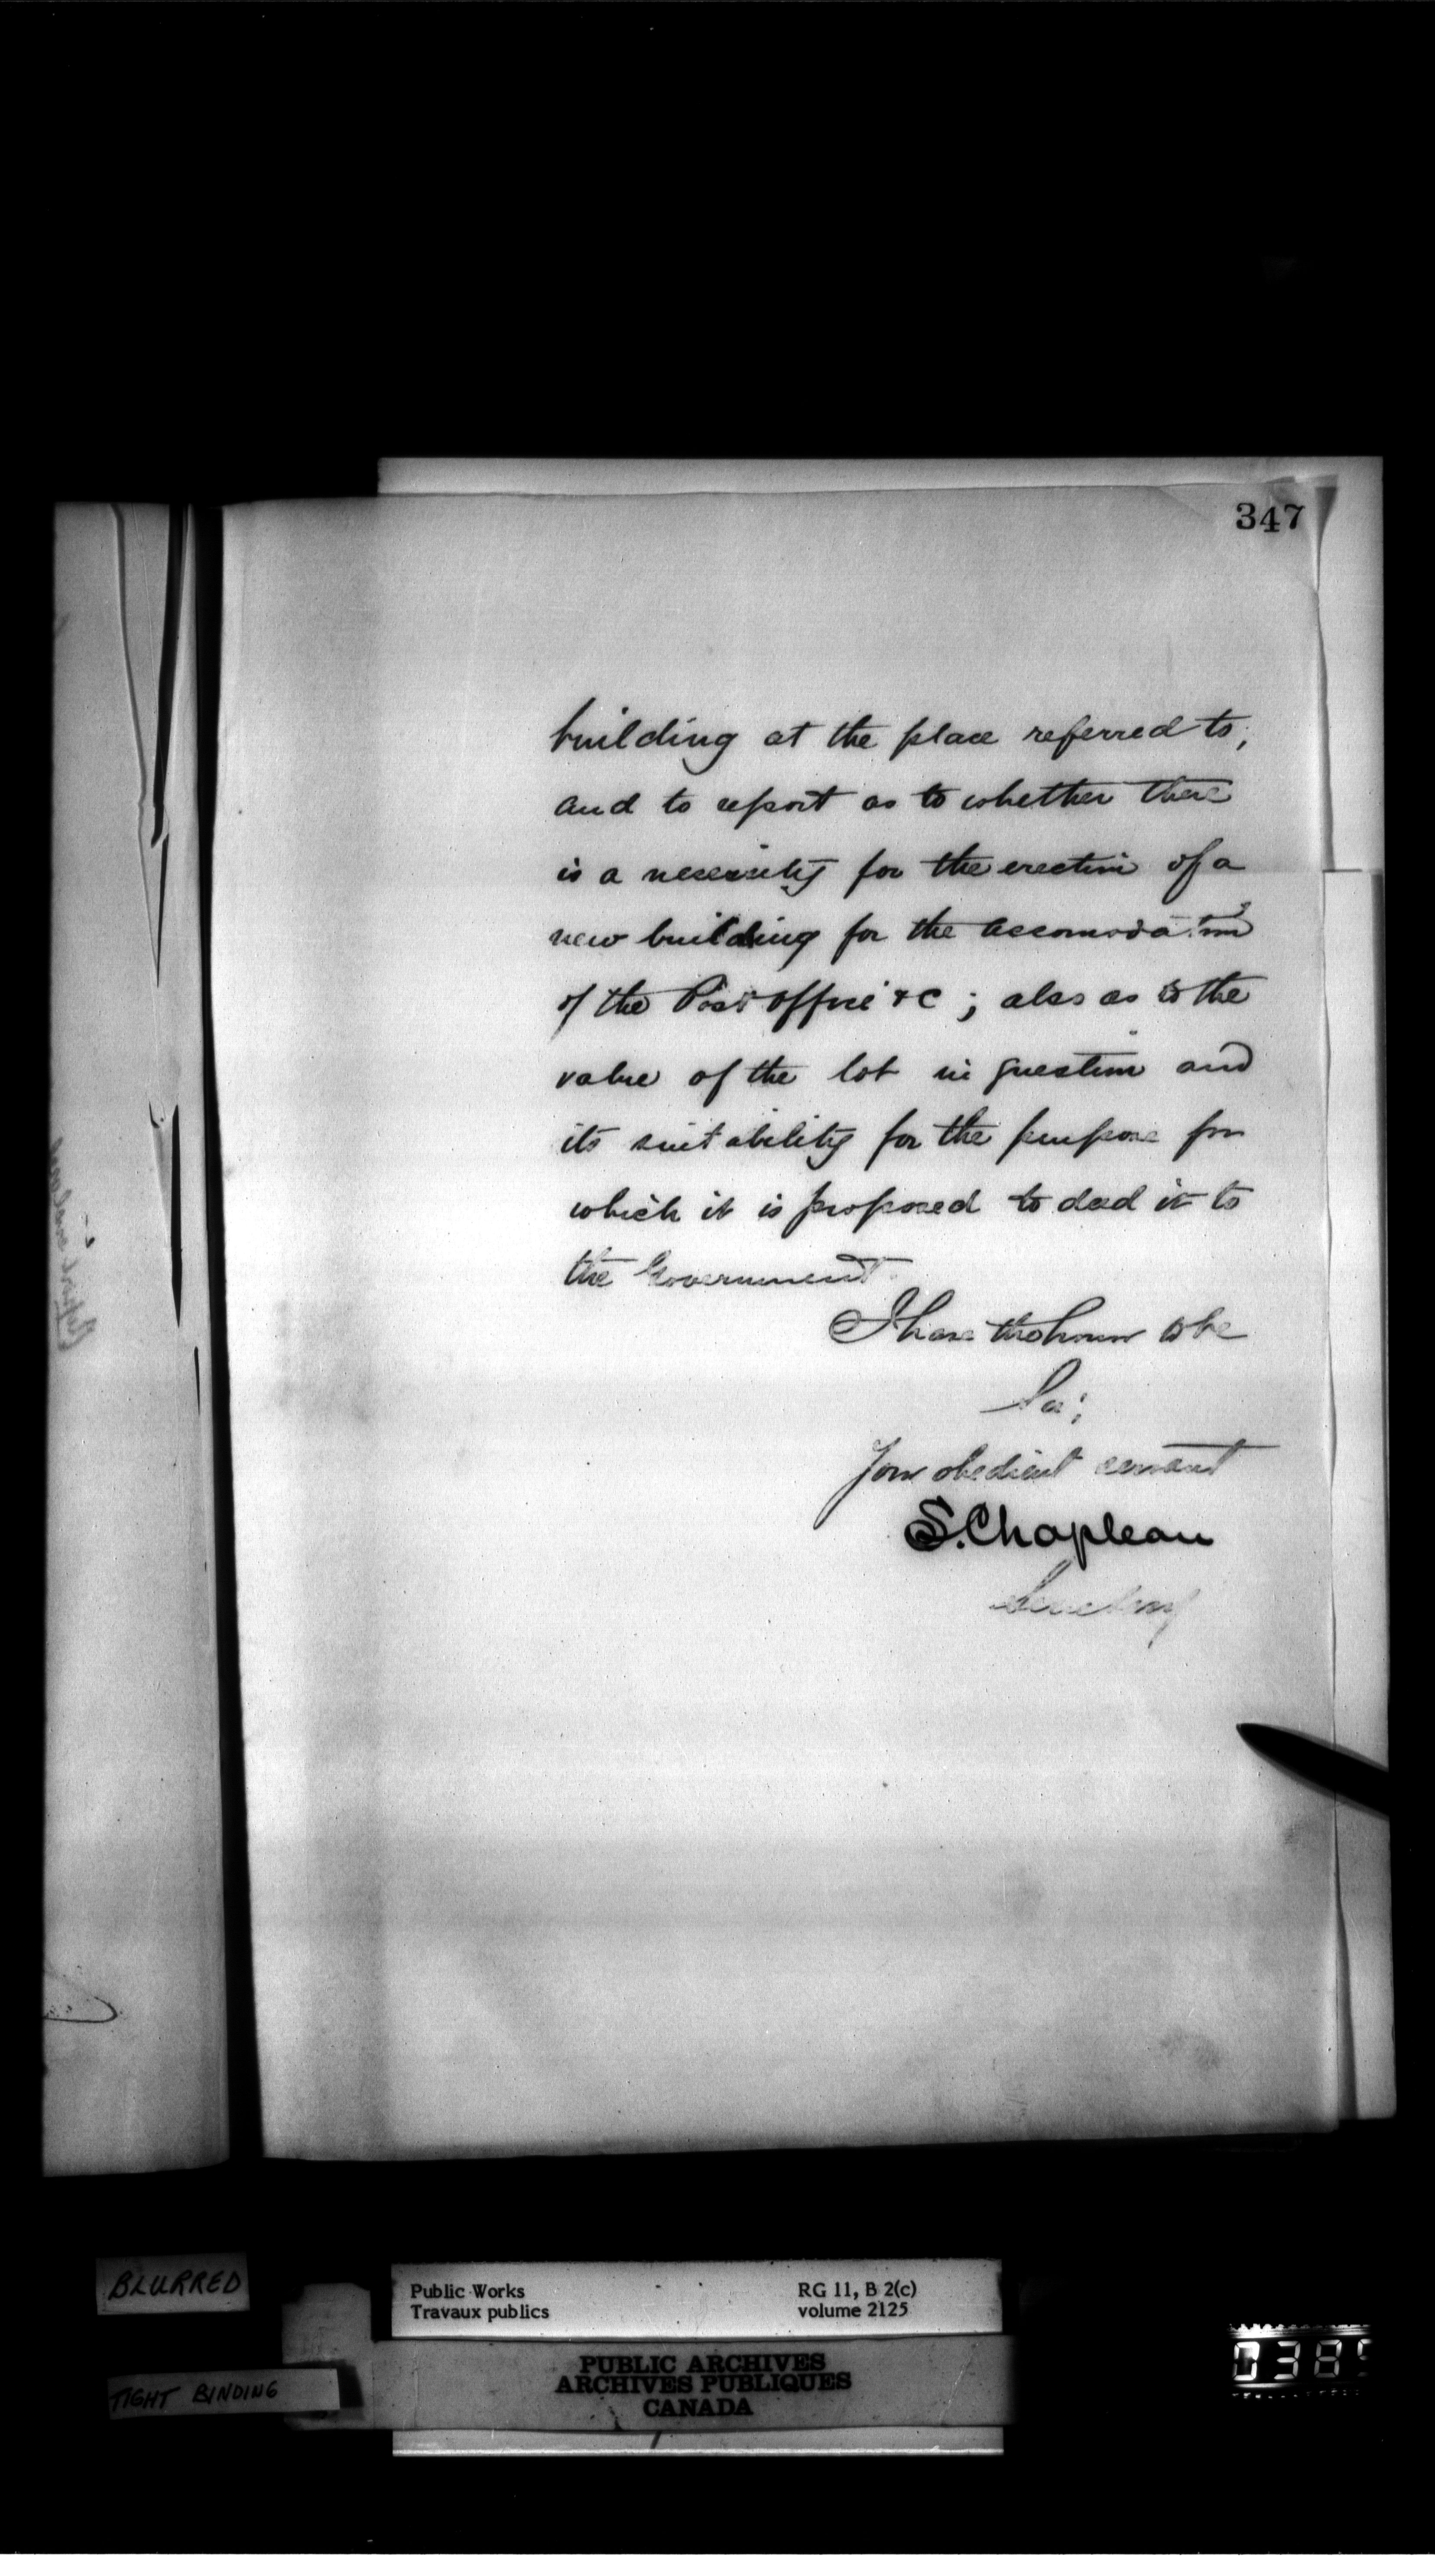 347
building at the place referred to,
and to report as to whether there
is a necessity for the erection of a
new building for the accomodation
of the Post Office &c ; also as to the
value of the lot in question and
its suitability for the purpose for
which it is proposed to deed it to
the Government.
I have the honor to be
Sir,
Your obedient servant
S. Chapleau
Secretary
BLURRED
TIGHT BINDING
Public Works
Travaux publics
RG 11, B 2(c)
volume 2125
PUBLIC ARCHIVES
ARCHIVES PUBLIQUES
CANADA
0385